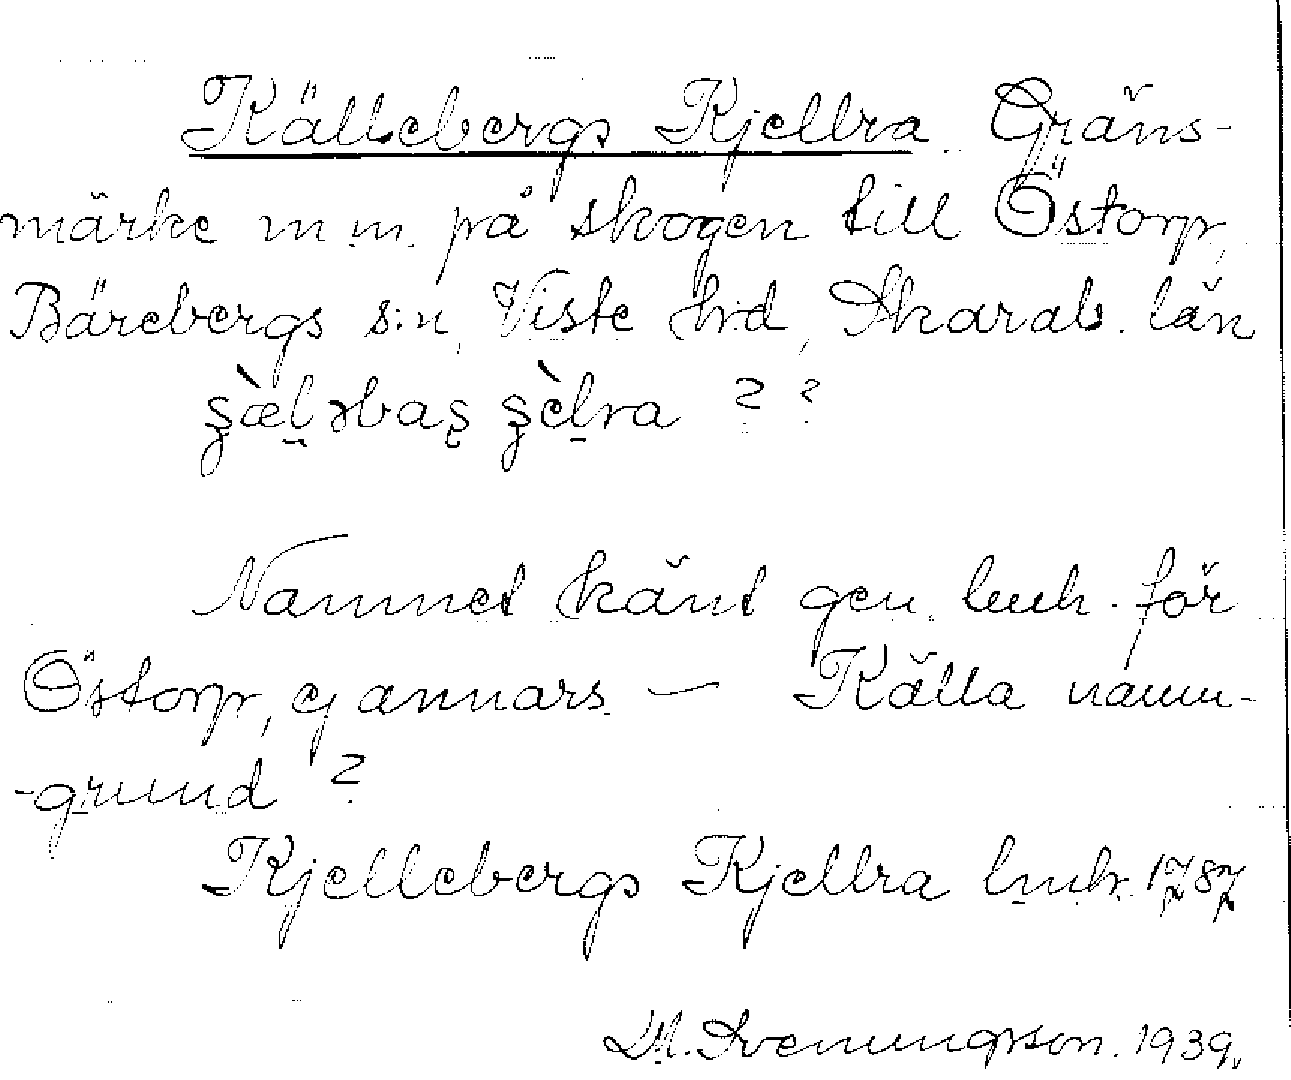 Källebergs Kjellra Gräns-
märke m.m. på skogen till Östorp,
Bärebergs s:n, Viste hd, Skarab. län
ʂæ̀l̥əbaʂ ʂèl̥ra ? ?
Namnet känt gen. lmh. för
Östorp, ej annars. — Källa namn-
-grund ?
Kjellebergs Kjellra lmh. 1787
M. Svenungsson. 1939.